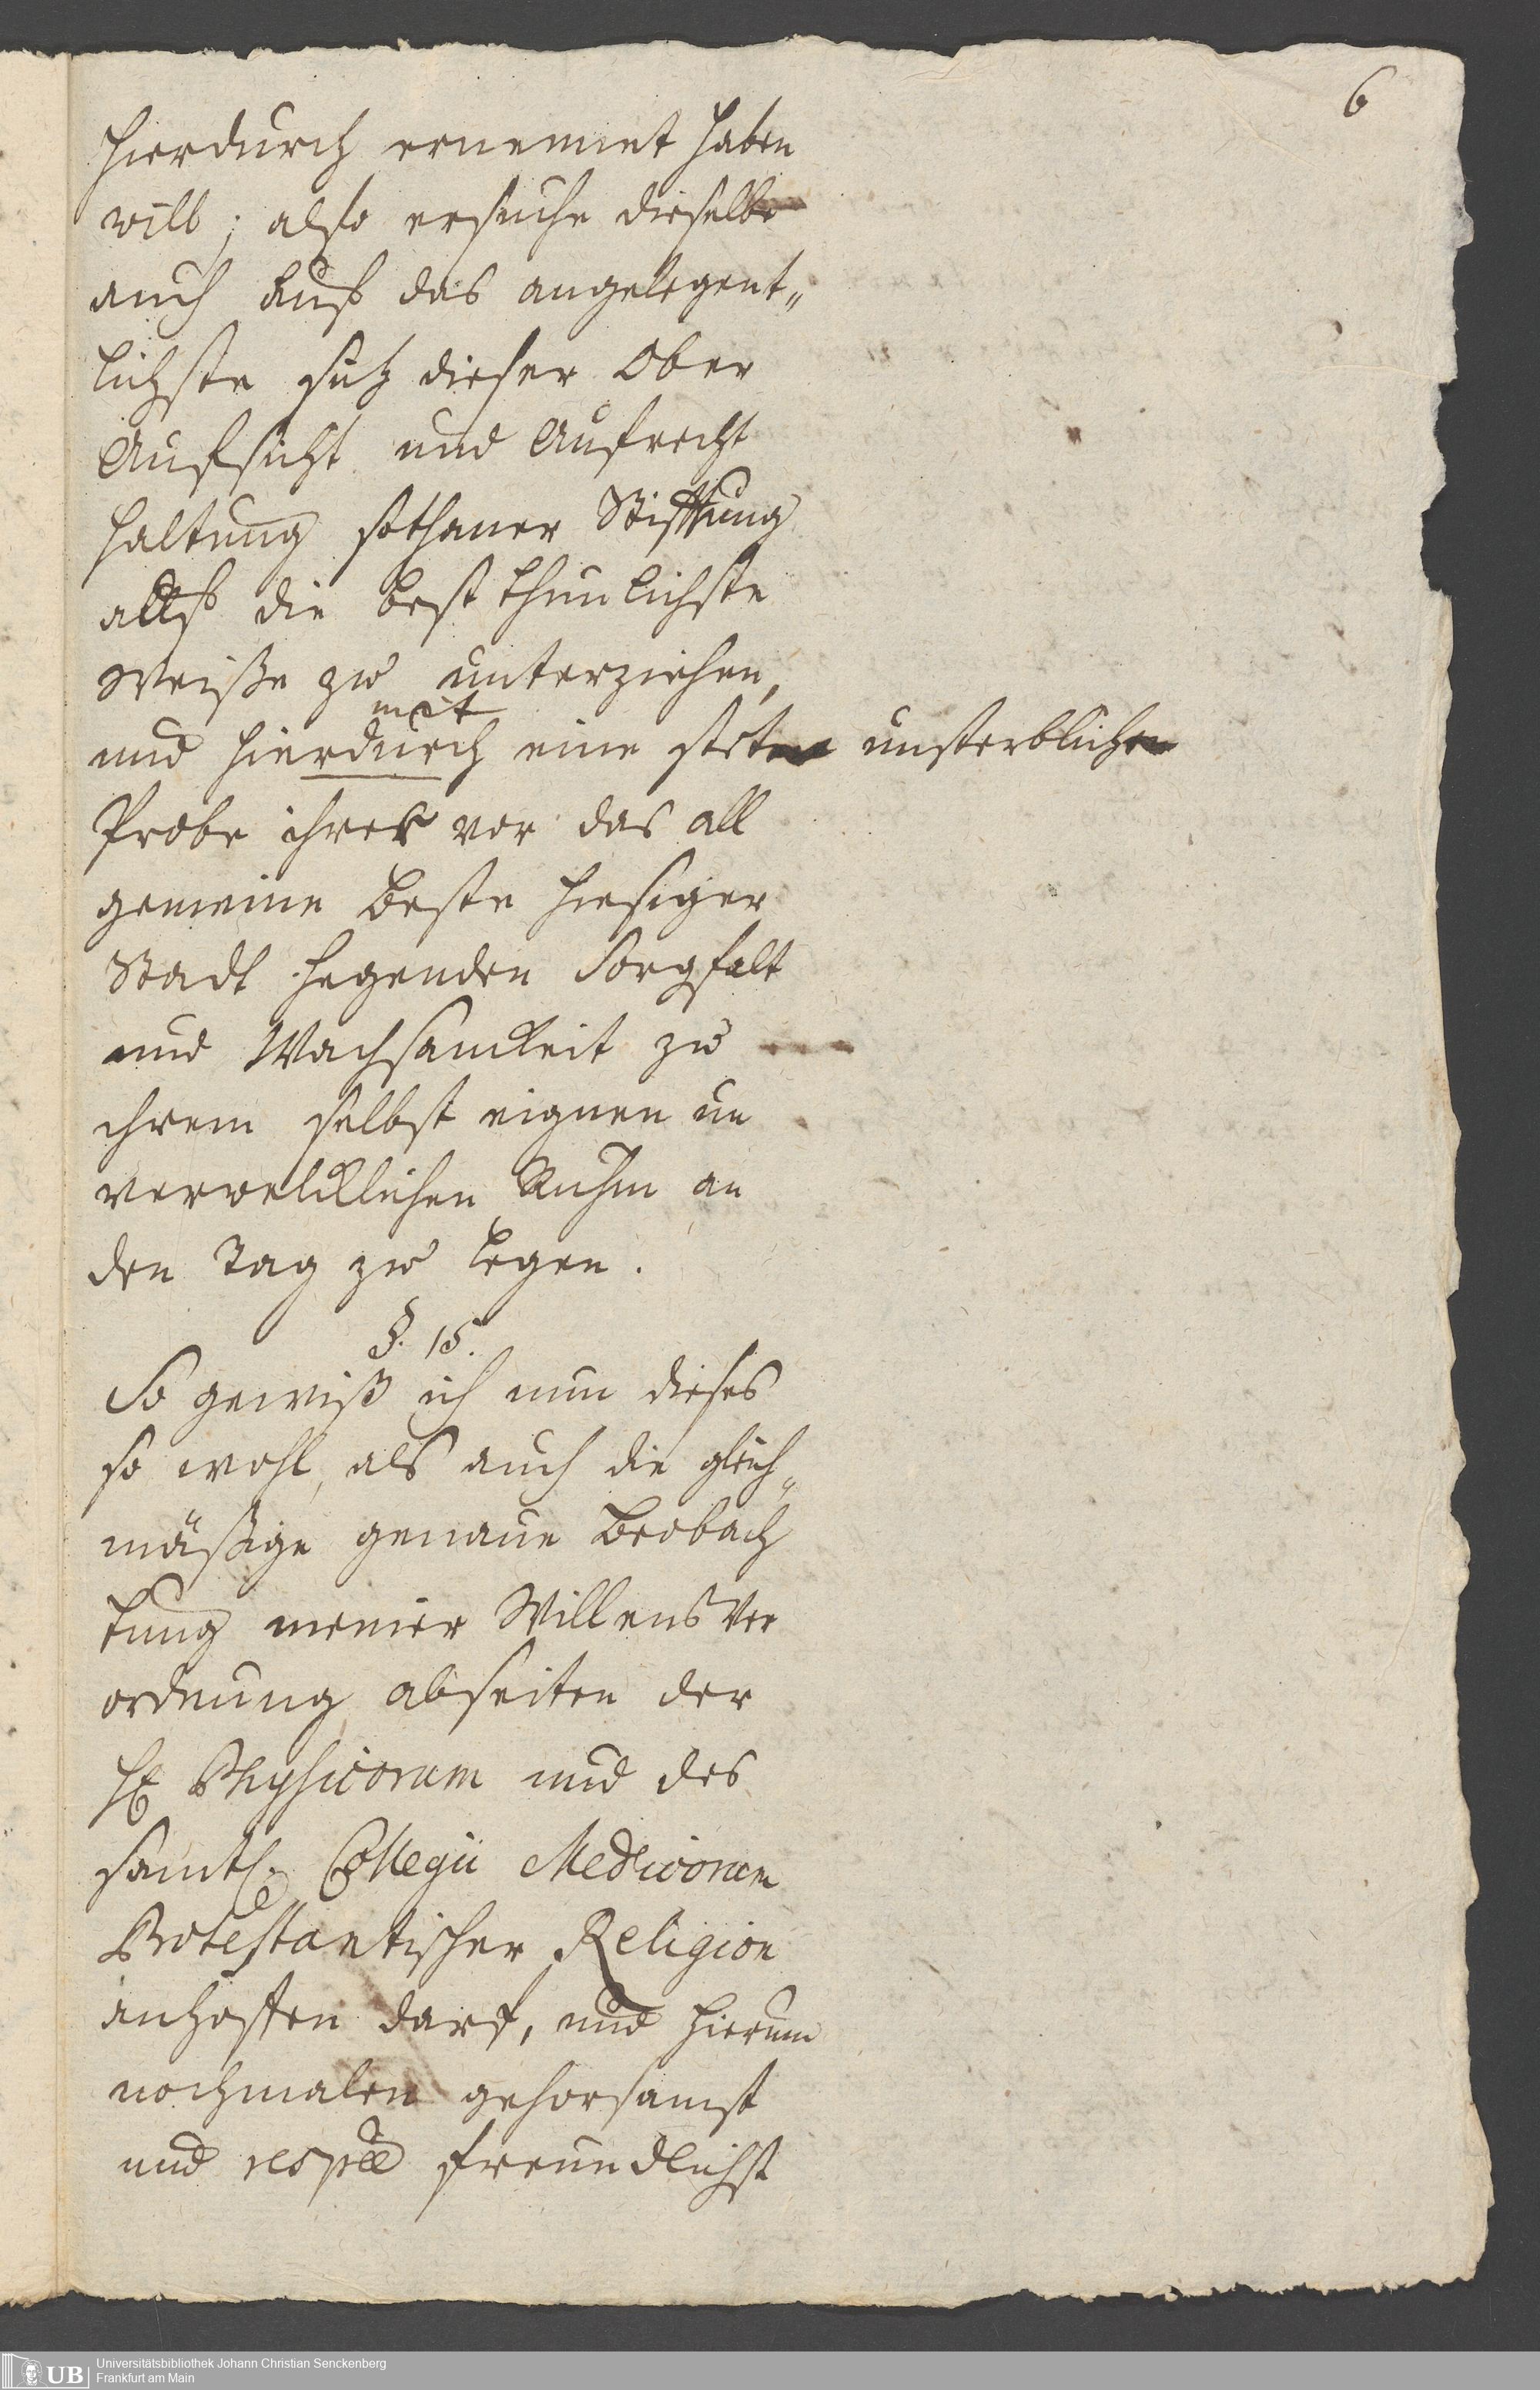 6
hierdurch ernennet haben
will; also ersuche dieselbe
auch auf das angelegent„
lichste sich dieser Ober
Aufsicht und Aufrecht
haltung sothaner Stifftung
auf die best thunlichste
Weiße zu unterziehen,
mit
und hierdurch eine stete unsterbliche
Probe ihrer vor das all
gemeine Beste hiesiger
Stadt hegenden Sorgfalt
und Wachsamkeit zu
ihrem selbst eignen un
verwelcklichen Ruhm an
den Tag zu legen.
§. 15.
So gewiß ich nun dieses
so wohl, als auch die gleich„
mäßige genaue Beobach
tung meiner Willens Ver
ordnung abseiten der
H. Physicorum und des
samtl. Collegii Medicorum
Protestantischer Religion
anhoffen darf, und hierum
nochmalen gehorsamst
und respve freundlichst
Universitätsbibliothek Johann Christian Senckenberg
UB Frankfurt am Main